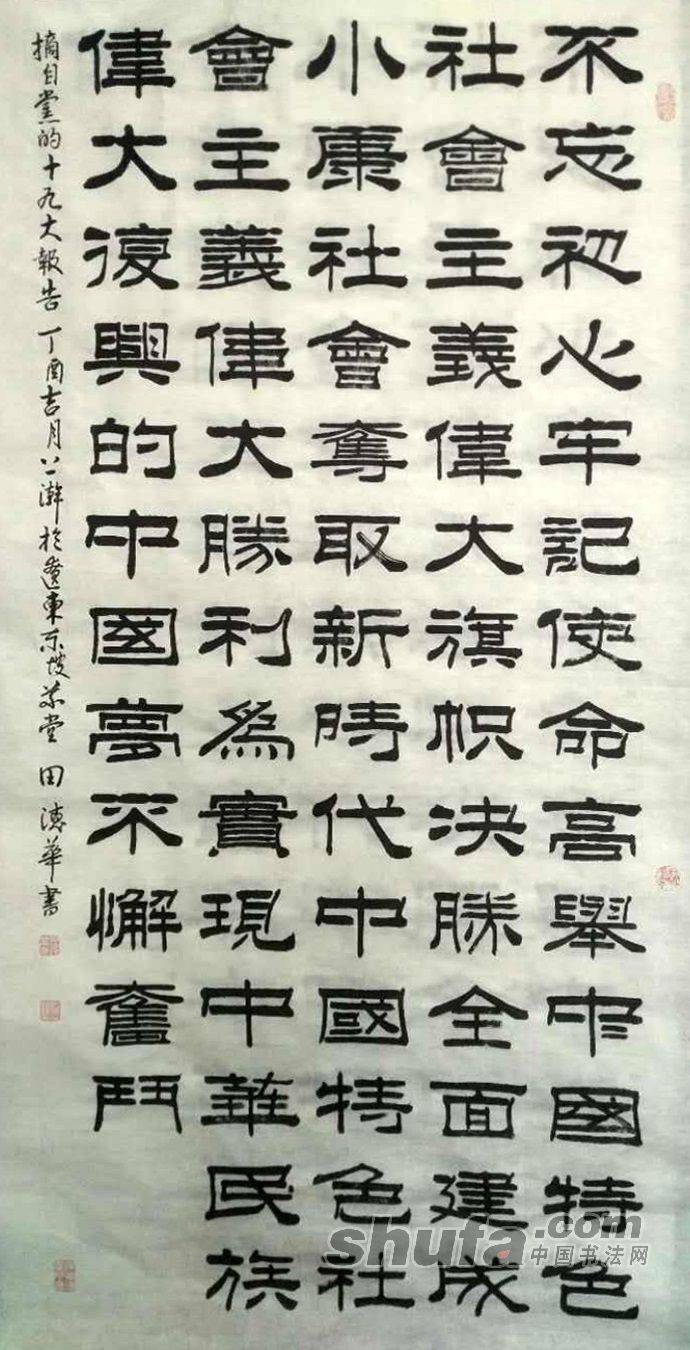 不忘初心牢記使命高舉中國特色
社會主義偉大旗幟決勝全面建成
小康社會奪取新時代中國特色社
會主義偉大勝利為實現中華民族
偉大復興的中國夢不懈奮鬥
摘自黨的十九大報告 丁酉吉月上澣於遼東東坡茶堂 田德華書
shufa.com
中国书法网